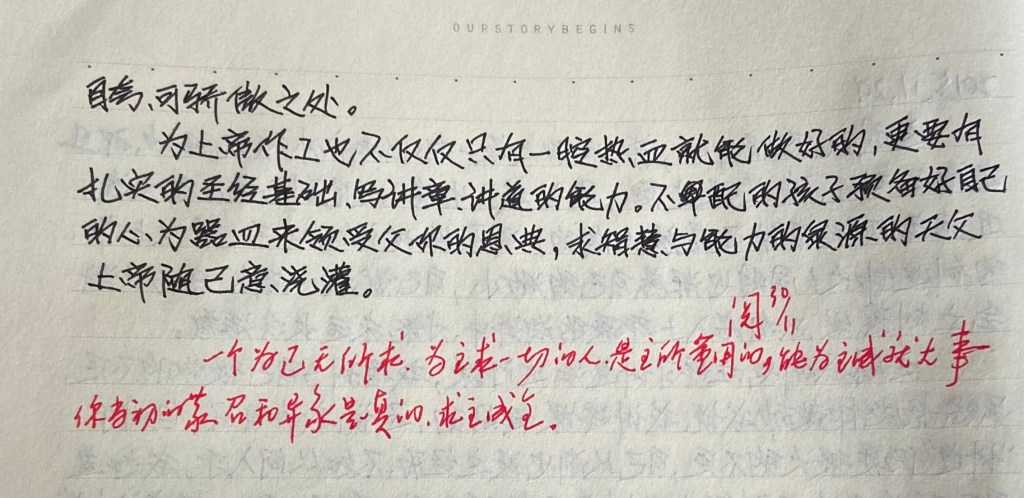 OURSTORYBEGINS
自夸、可骄傲之处。
为上帝作工也不仅仅只有一腔热血就能做好的,更要有
扎实的圣经基础、写讲章、讲道的能力。不单配的孩子预备好自己
的心、为器皿来领受父你的恩典,求智慧与能力的泉源的天父
上帝随己意浇灌。
阅 30/11
一个为己无所求,为主求一切的人,是主所重用的,能为主成就大事
你当初的蒙召和异象是真的,求主成全。